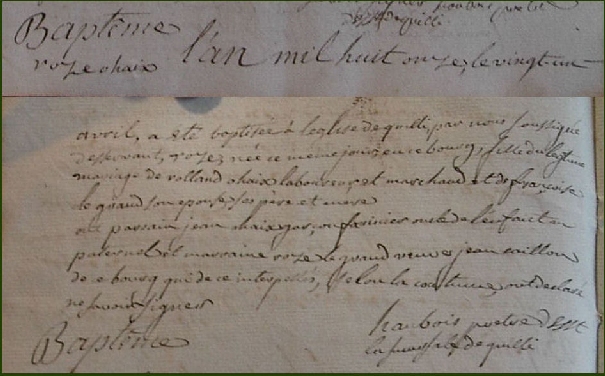 de quilli
Baptême
roze ohaix l'an mil huit onze, le vingt un
avril, a été baptisée à léglise de quilli, par nous soussigné
desservant, roze, née ce même jour, en ce bourg, fille du légitime
mariage de rolland ohaix laboureur et marchand et de françoise
le grand son epouse ses père et mere
ont parrain jean ohaix garçon farinier oncle de l'enfant en
paternel et marraine roze le grand veuve jean caillon
de ce bourg qui de ce interpellés, selon la coutume, ont déclaré
ne savoir signer
harbois prêtre
Baptême
de quilli